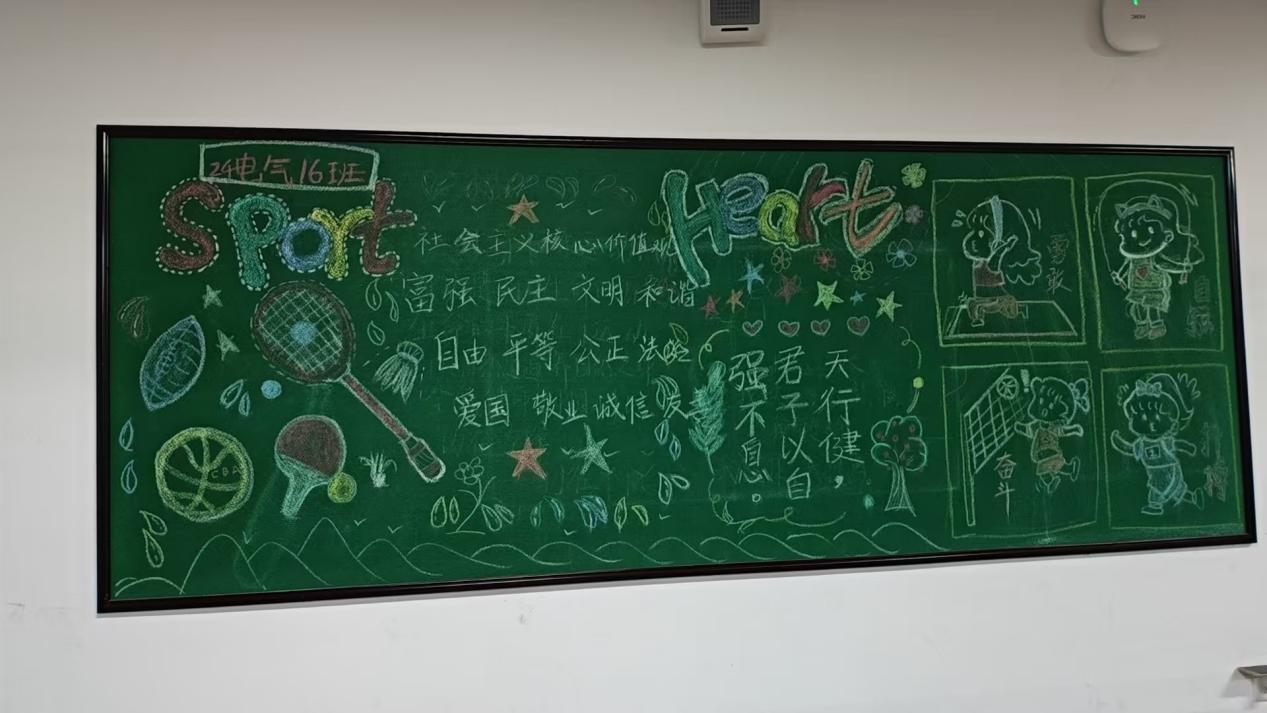 24电气16班
Sport
社会主义核心价值观
富强 民主 文明 和谐
自由 平等 公正 法治
爱国 敬业 诚信 友善
CBA
Heart
天行健，
君子以自
强不息。
勇敢
自
奋斗